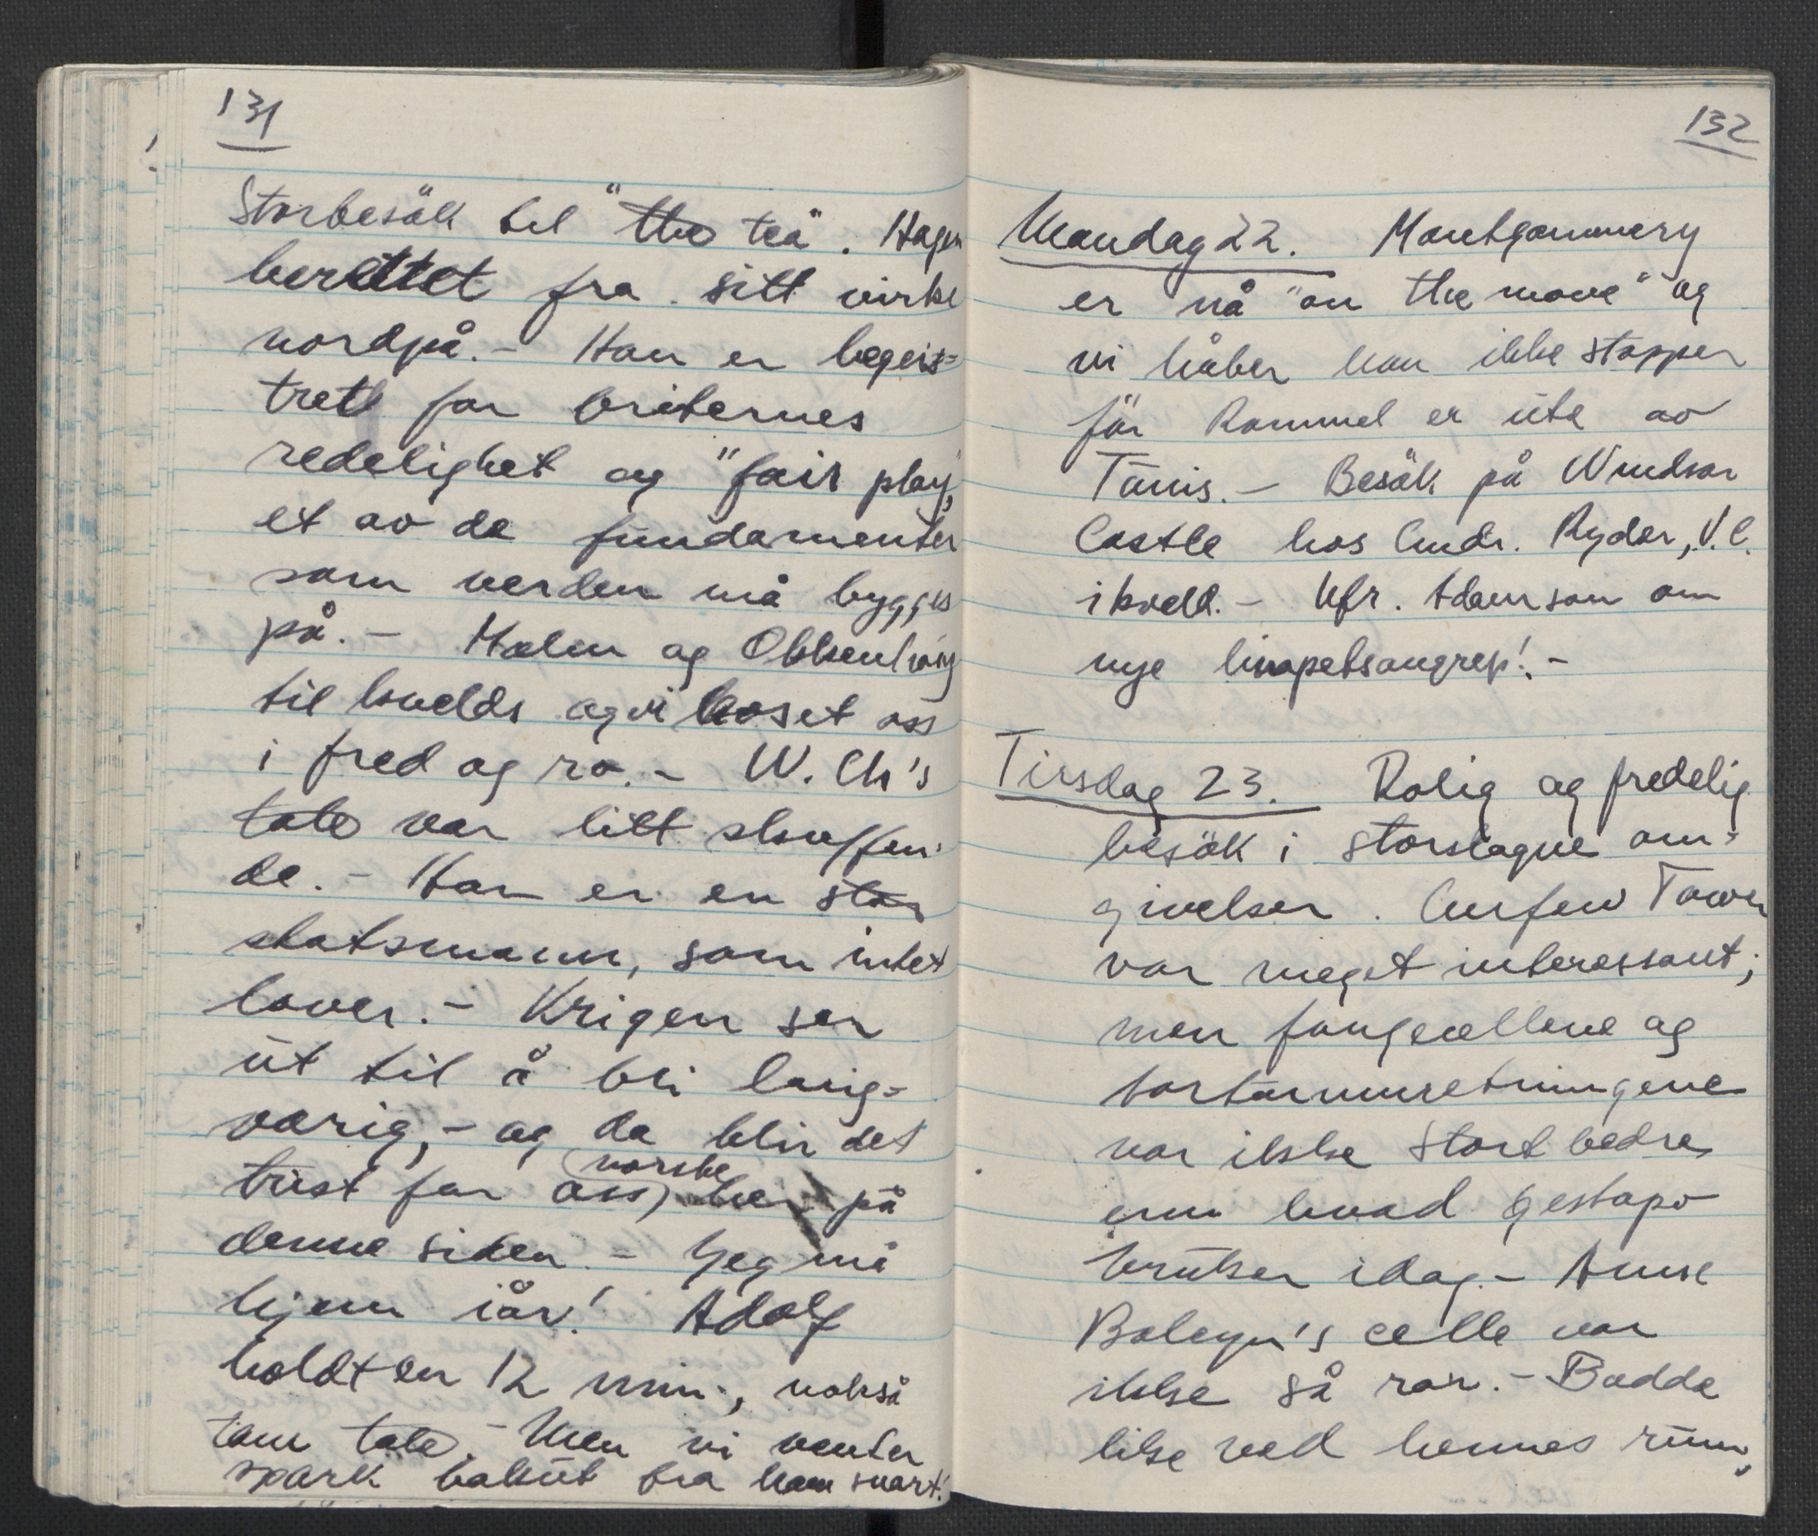 131
Storbesök til "the teä". Hagen
berettet fra sitt virke
nordpå. - Han er begeis=
tret for briternes
redelighet og "fair play",
et av de fundamenter
som verden må bygges
på. - Holm og Okkenhaug
til kvelds og vi koset oss
i fred og ro. - W. Ch's
tale var litt skuffen-
de. - Han er en stor
statsmann, som intet
lover. - Krigen ser
ut til å bli lang=
varig, - og da blir det
trist for oss, norske her på
denne siden. - Jeg må
hjem iår! Adolf
holdt en 12 min., nokså
tam tale. - Men vi venter
spark bakut fra ham snart!
132
Mandag 22. Montgommery
er nå "on the move" og
vi håber han ikke stopper
för Rommel er ute av
Tunis. - Besök på Windsor
Castle hos Cmdr. Ryder, V.C.
ikveld. - Kfr. Adamson om
nye limpetsangrep! -
Tirsdag 23. Rolig og fredelig
besök i storslagne om=
givelser. Curfew Tower
var meget interessant;
men fangecellene og
torturinnretningene
var ikke stort bedre
enn hvad Gestapo
bruker idag. - Anne
Boleyn's celle var
ikke så rar. - Bodde
like ved hennes rum,